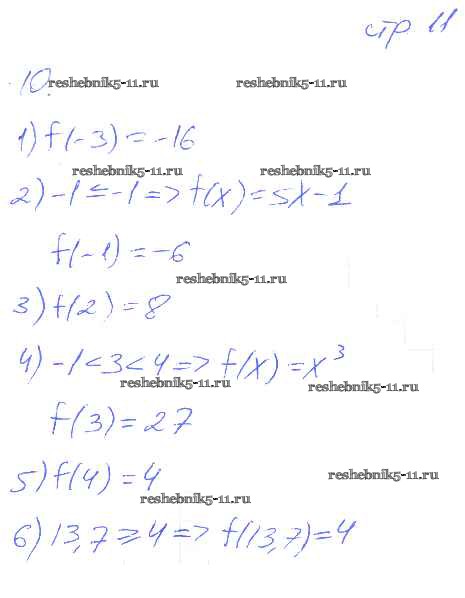 стр 11
10. reshebnik5-11.ru reshebnik5-11.ru
1) f(-3) = -16
reshebnik5-11.ru reshebnik5-11.ru
2) -1 ≤ -1 => f(x) = 5x - 1
f(-1) = -6
reshebnik5-11.ru
3) f(2) = 8
4) -1 < 3 < 4 => f(x) = x³
reshebnik5-11.ru reshebnik5-11.ru
f(3) = 27
5) f(4) = 4
reshebnik5-11.ru
reshebnik5-11.ru
6) 13,7 ≥ 4 => f(13,7) = 4